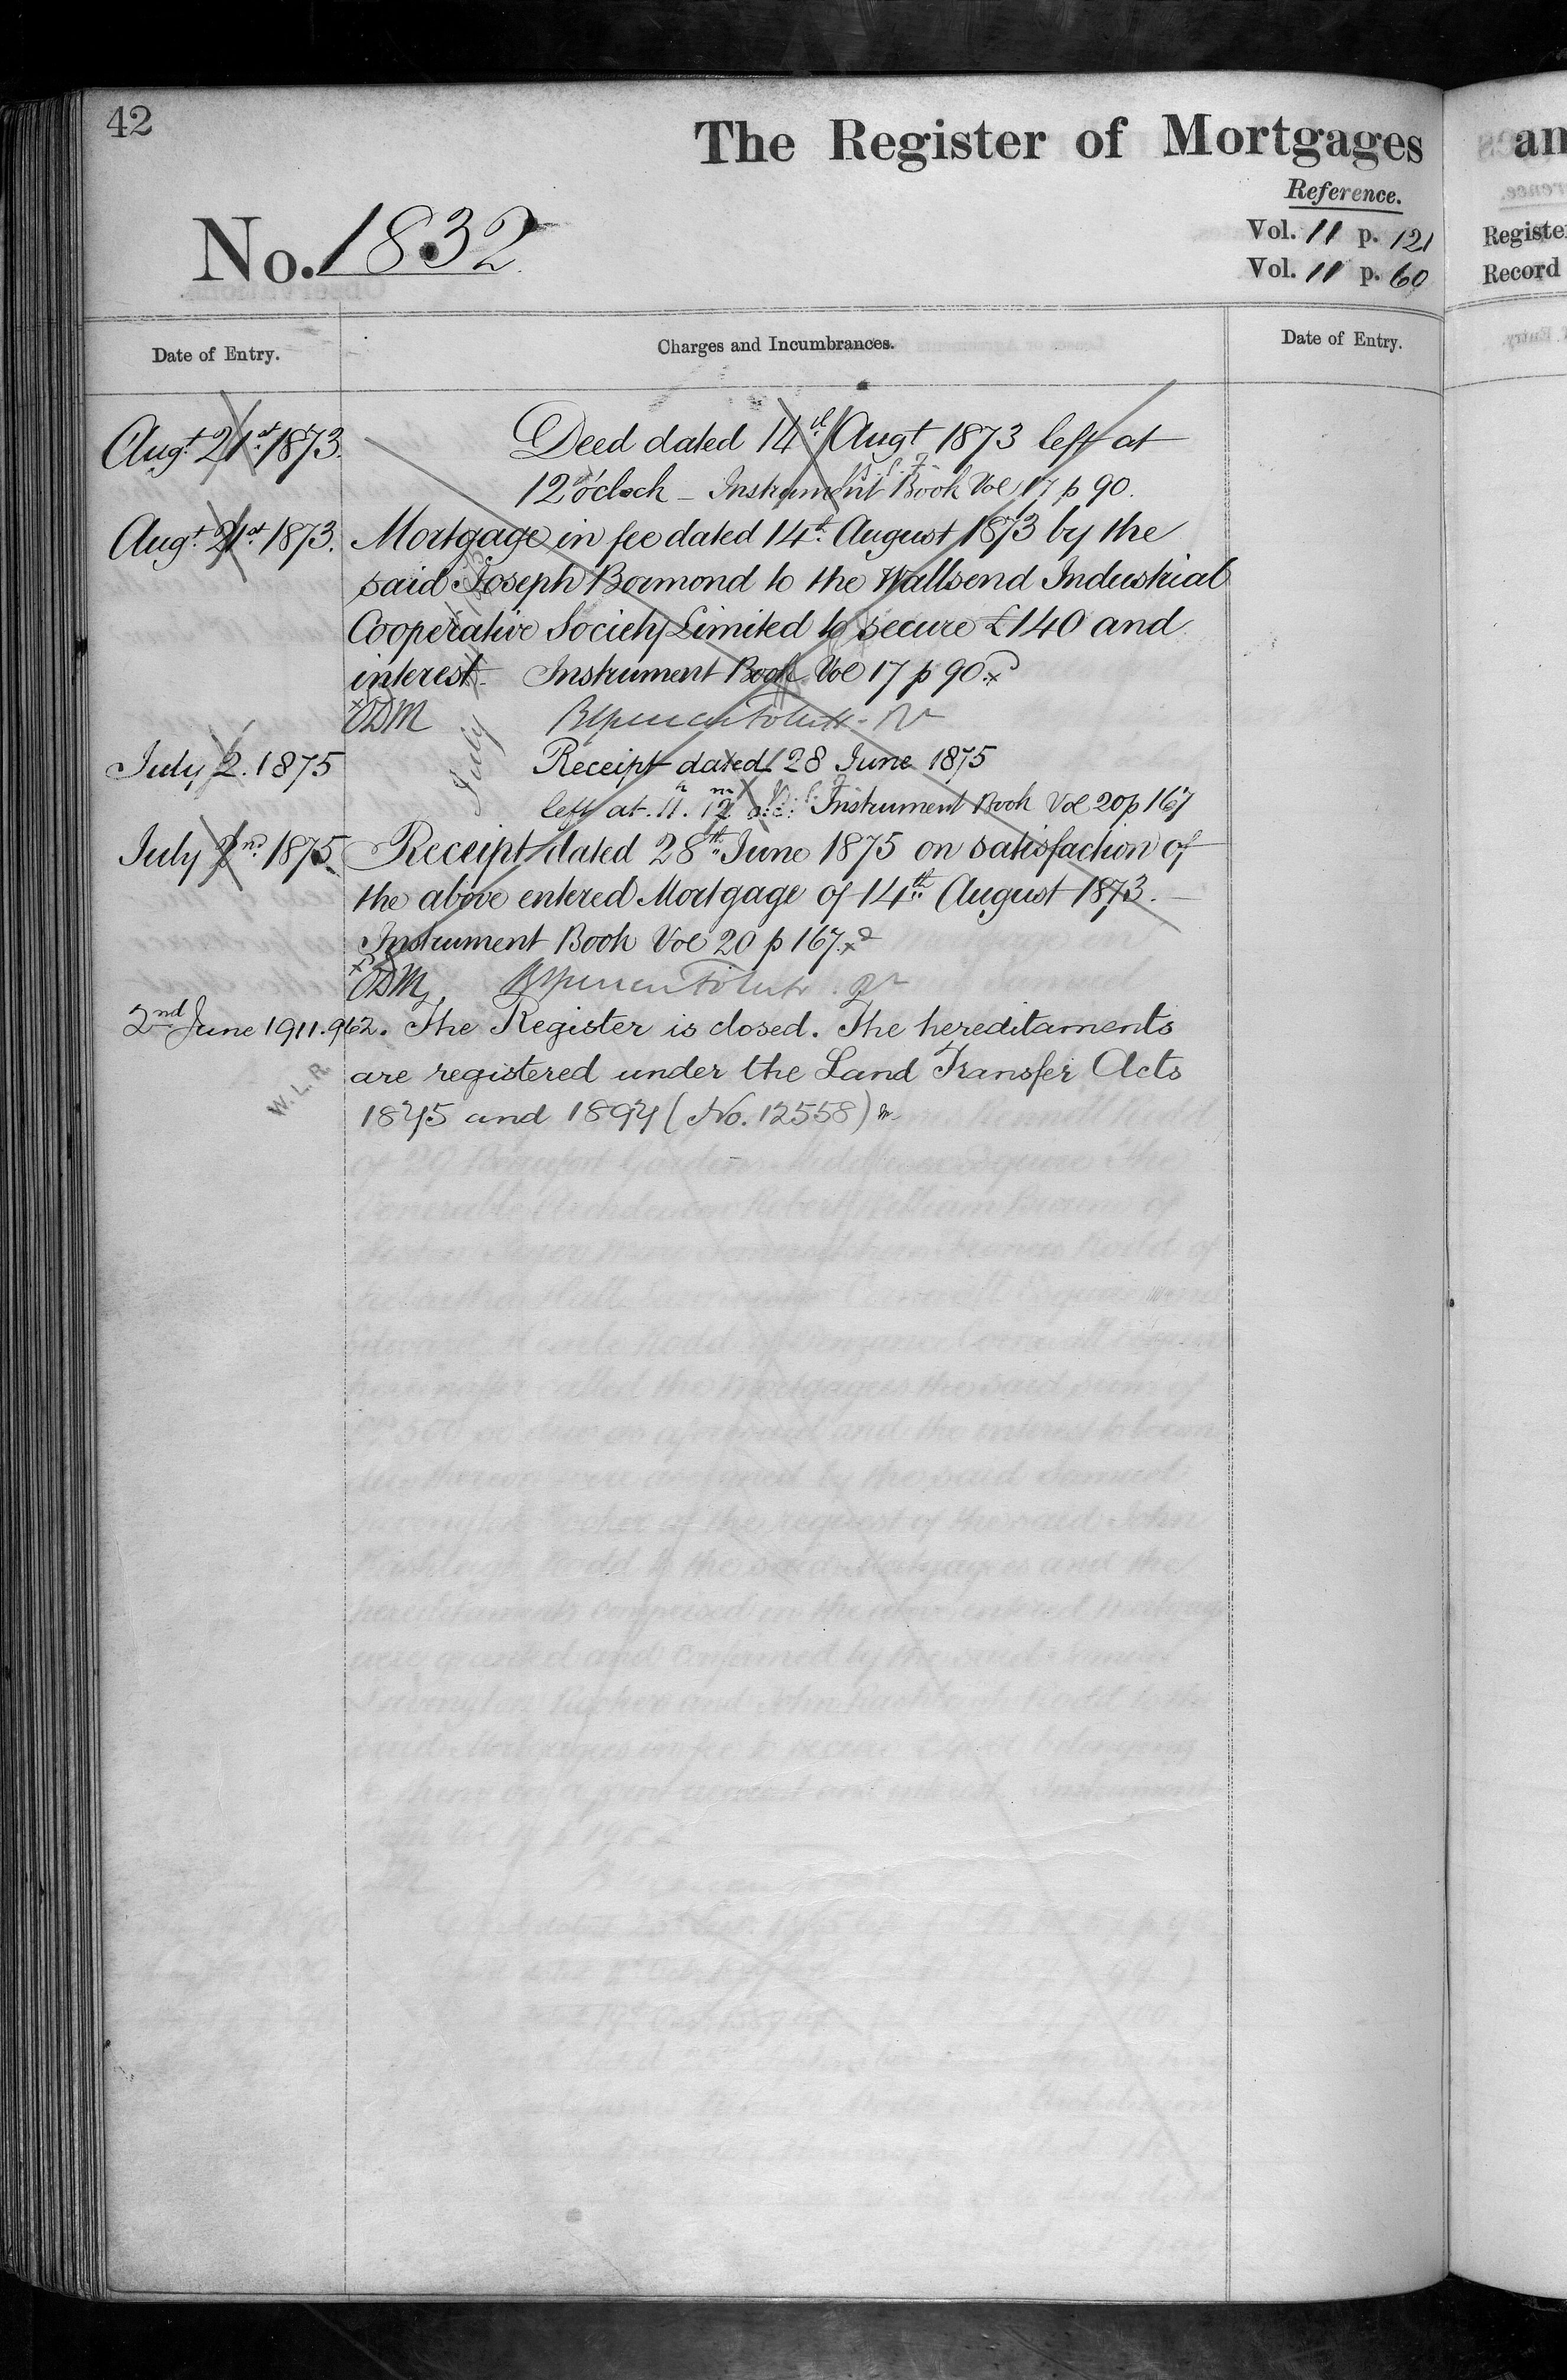 42
The Register of Mortgages
Reference.
No. 1832
Vol. 11 p. 121
Vol. 11 p. 60
Date of Entry.
Charges and Incumbrances.
Date of Entry.
Augt. 21st 1873.
Deed dated 14th Augt 1873 left at
12 o'clock – Instrument Book Vol 17 p 90.
Augt. 21st 1873.
Mortgage in fee dated 14th August 1873 by the
said Joseph Bormond to the Wallsend Industrial
Cooperative Society Limited to secure £140 and
interest. Instrument Book Vol 17 p 90.
July 2. 1875
Receipt dated 28 June 1875
left at 11. 12 Instrument Book Vol 20 p 167
July 2nd 1875
Receipt dated 28th June 1875 on satisfaction of
the above entered Mortgage of 14th August 1873. –
Instrument Book Vol 20 p 167.
2nd June 1911. 962. The Register is closed. The hereditaments
are registered under the Land Transfer Acts
1875 and 1897 (No. 12558)
W. L. R.
an
Register
Record